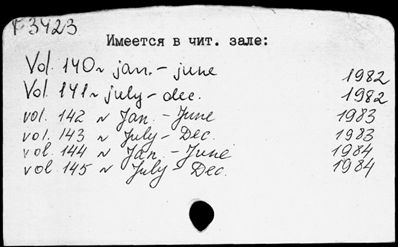 F 3423
Имеется в чит. зале:
Vol. 140 ~ jan. - june 1982
Vol 141 ~ july - dec. 1982
vol. 142 ~ Jan. - June 1983
vol. 143 ~ July - Dec. 1983
vol. 144 ~ Jan. - June 1984
vol 145 ~ July - Dec. 1984